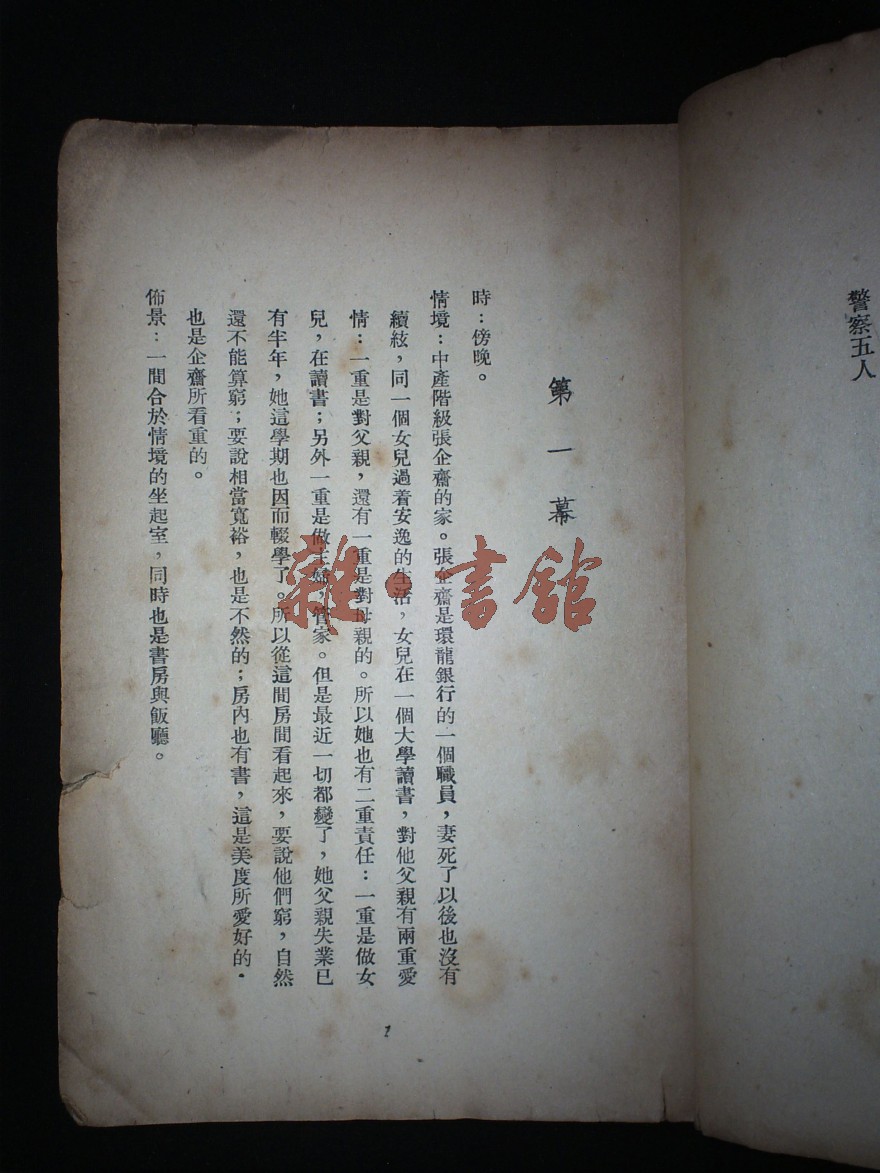 警察五人
第一幕
時：傍晚。
情境：中產階級張企齋的家。張企齋是環龍銀行的一個職員，妻死了以後也沒有
續絃，同一個女兒過着安逸的生活，女兒在一個大學讀書，對他父親有兩重愛
情：一重是對父親，還有一重是對母親的。所以她也有二重責任：一重是做女
兒，在讀書；另外一重是做主婦，管家。但是最近一切都變了，她父親失業已
有半年，她這學期也因而輟學了。所以從這間房間看起來，要說他們窮，自然
還不能算窮；要說相當寬裕，也是不然的；房內也有書，這是美度所愛好的·
也是企齋所看重的。
佈景：一間合於情境的坐起室，同時也是書房與飯廳。
1
雜·書館